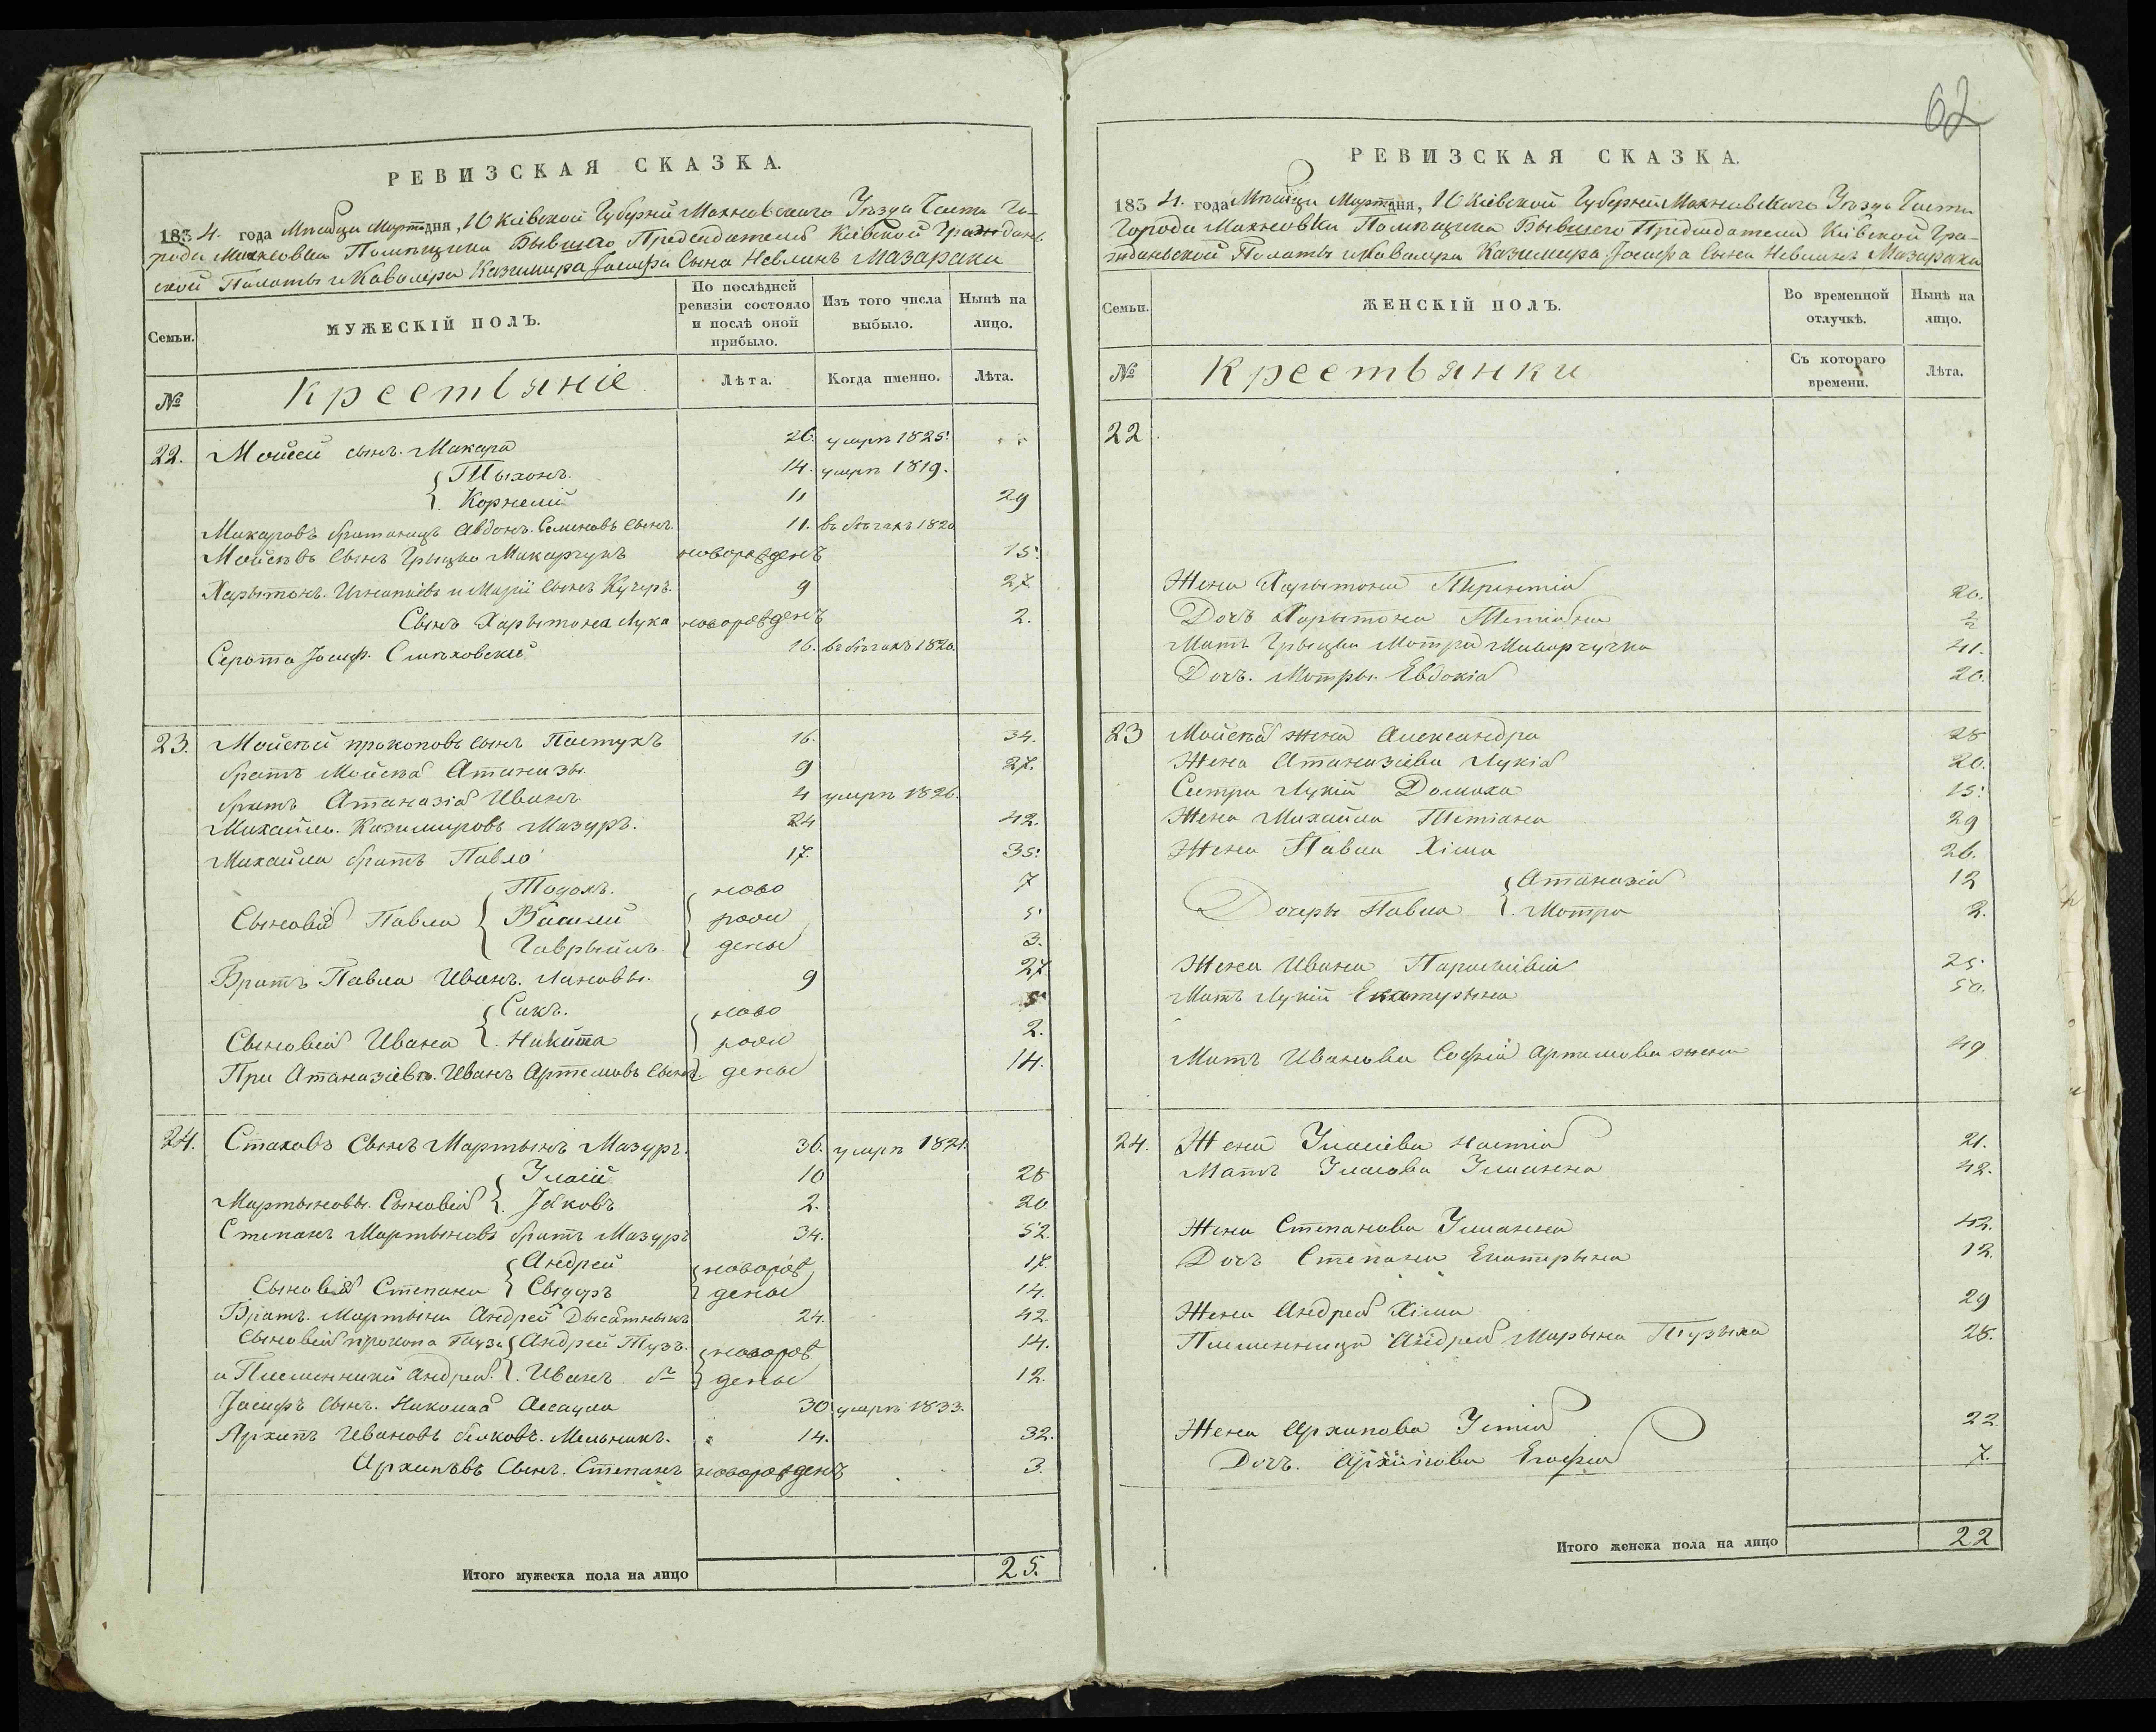 РЕВИЗСКАЯ СКАЗКА.
1834. года Мѣсяца Марта дня, 10 Кіевской Губерніи Махновскаго Уѣзда Части Го-
рода Махновки Помѣщика Бывшего Председателя Кіевской Гражданс-
кой Палаты и Кавалера Казимира Іосифа Сына Невлинъ Мазараки
Семьи.
МУЖЕСКІЙ ПОЛЪ.
По послѣдней ревизіи состояло и послѣ оной прибыло.
Изъ того числа выбыло.
Нынѣ на лицо.
№ крестьяніе Лѣта. Когда именно. Лѣта.
22. Мойсей сынъ Макара 26. умръ 1825.
Тыхонъ. 14. умръ 1819.
Корнелій 11 29
Макаровъ братаницъ Авдонъ Семеновъ сынъ. 11. въ бѣгахъ 1820
Мойсѣвъ Сынъ Грыцко Макарчукъ новорожденъ 15.
Харытонъ Игнатіевъ и Маріи сынъ Кучеръ. 9 27.
Сынъ Харытона Лука новорожденъ 2.
Серота Іосиф 16. въ бѣгахъ 1820.
23. Мойсѣй прокоповъ сынъ Пастухъ 16. 34.
братъ Мойсѣя Атаназы 9 27.
братъ Атаназія Иванъ 4 умръ 1826.
Михайло Казимировъ Мазуръ. 24 42.
Михайла братъ Павло 17. 35.
Тодохъ. ново 7
Сыновія Павла Василій рож 5.
Гаврыилъ. дены 3.
Братъ Павла Иванъ. Лановы. 9 27
Сакъ. ново 5
Сыновія Ивана Никита рож 2.
При Атаназіевѣ. Иванъ Артемовъ Сынъ дены 14.
24. Стаховъ Сынъ Мартынъ Мазуръ. 36. умръ 1821.
Уласій 10 28
Мартыновы. Сыновія Яковъ 2. 20
Степанъ Мартыновъ братъ Мазуръ 34. 52.
Андрей новорож 17.
Сыновія Степана Сыдоръ дены 14.
Братъ Мартына Андрей Дысятныкъ 24. 42.
Сыновія прокопа Туза Андрей Тузъ. новорож 14.
и Племенники Андрея. Иванъ дены 12.
Іосифъ сынъ Николая 30 умръ 1833.
Архипъ Ивановъ Мельникъ. 14. 32.
Архипѣвъ Сынъ. Степанъ новорожденъ 3.
Итого мужеска пола на лицо 25.
62
РЕВИЗСКАЯ СКАЗКА.
1834. года Мѣсяца Марта дня, 10 Кіевской Губерніи Махновскаго Уѣзда Части
Города Махновки Помѣщика Бывшего Председателя Кіевской Гра-
жданьской Полаты и Кавалера Казимира Іосифа Сына Невлинъ Мазараки
Семьи.
ЖЕНСКІЙ ПОЛЪ.
Во временной отлучкѣ.
Нынѣ на лицо.
№ крестьянки Съ котораго времени. Лѣта.
22
Жена Харытона Терентія 20.
Дочъ Харытона Тетіана ½
Мать Грыцка Мотря Макарчучка 41.
Дочъ. Мотры Евдокія 20.
23 Мойсѣя жена Александра 28
Жена Атаназіева Лукія 20.
Сестра Лукіи Домаха 15.
Жена Михайла Тетіана 29
Жена Павла Хіма 26.
Атаназія 12
Дочеры Павла Мотря 2.
Жена Ивана Параскевія 25.
Мать Лукіи Екатерына 50.
Мать Иванова Софія Артемова жена 49
24. Жена Уласіева Настія 21.
Мать Уласова Ульянна 42.
Жена Степанова Ульянна 42.
Дочъ Степана Екатерына 12.
Жена Андрея Хіма 29
Племенница Андрея Марына Тузыха 28.
Жена Архипова Устія 22
Дочъ. Архипова 7.
Итого женска пола на лицо 22